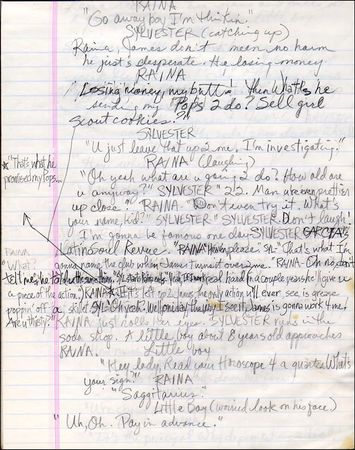 RAINA
"Go away boy I'm thinkin."
SYLVESTER (catching up)
Raina, James don't mean no harm
he just's desperate. He losing money.
RAINA
"Losing money, my butt! then What's he
sending my Pops 2 do? Sell girl
scout cookies?"
SYLVESTER
"U just leave that up 2 me. I'm investigating."
RAINA (laughing)
"Oh yeah what are u going 2 do? How old are
u anyway?" SYLVESTER "22. Man u even prettier
up close." RAINA "Don't even try it. What's
your name, kid?" SYLVESTER "SYLVESTER Don't laugh!
I'm gonna be famous one day SYLVESTER GARCIA'S
Latin soul Revue." RAINA "please" "That's what I'm
gonna name the club when James turns it over 2 me." RAINA "Oh no, don't
tell me he told u the same thing."
a piece of the action." RAINA "If it's left up 2 James the only action u'll ever see is grease
poppin' off a skillet." SYLVESTER "Oh yeah. James is gonna work 4 me.
RAINA just rolls her eyes. SYLVESTER runs in the
soda shop. A little boy about 8 years old approaches
RAINA. Little boy
"Hey lady, Read your Horoscope 4 a quarter. What's
your sign?" RAINA
"Saggitarius."
Little Boy (worried look on his face)
"Uh, Oh. Pay in advance."
* "That's what he
promised my Pops...
RAINA
"What?
Are u thirsty?"